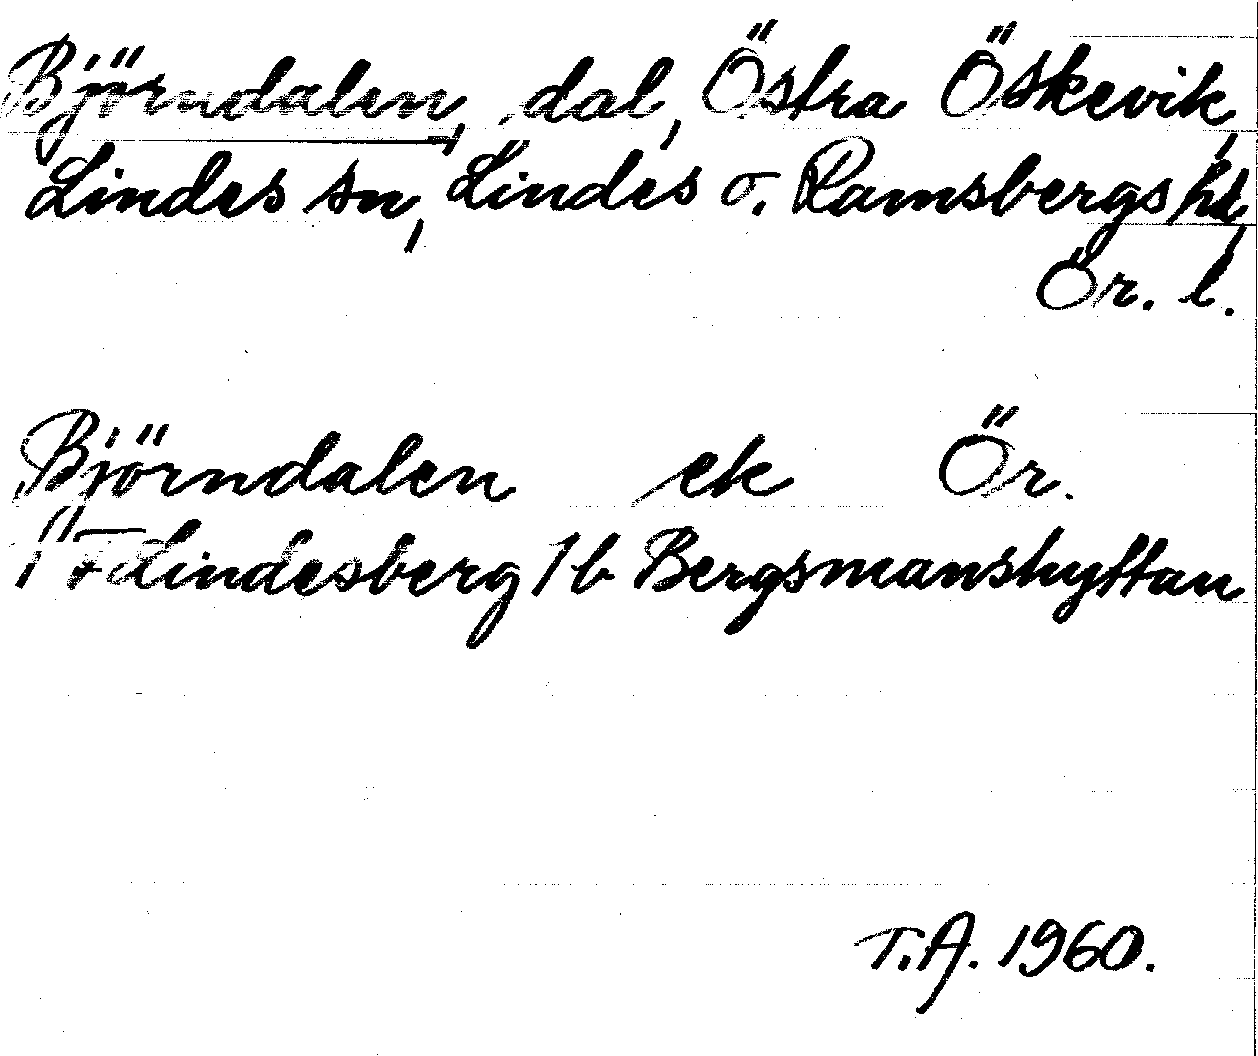 Björndalen, dal, Östra Öskevik,
Lindes sn, Lindes o. Ramsbergs hd,
Ör. l.
Björndalen ek Ör.
Lindesberg 1b Bergsmanshyttan
T.A. 1960.